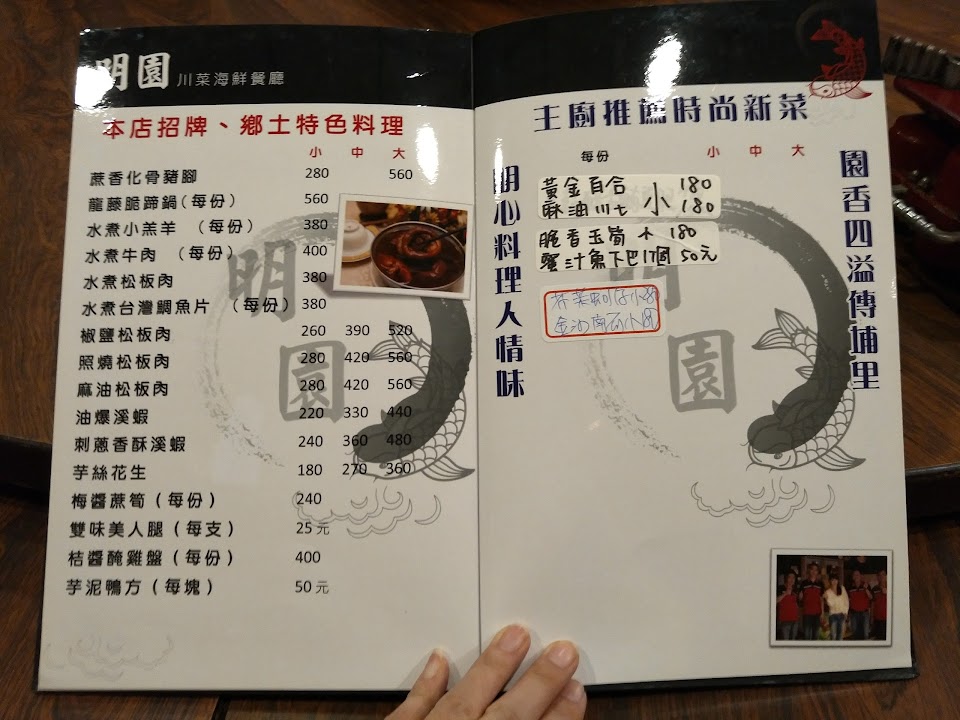 明園 川菜海鮮餐廳
本店招牌、鄉土特色料理
小 中 大
蔗香化骨豬腳 280 560
龍藤脆蹄鍋(每份) 560
水煮小羔羊 (每份) 380
水煮牛肉 (每份) 400
水煮松板肉 380
水煮台灣鯛魚片 (每份) 380
椒鹽松板肉 260 390 520
照燒松板肉 280 420 560
麻油松板肉 280 420 560
油爆溪蝦 220 330 440
刺蔥香酥溪蝦 240 360 480
芋絲花生 180 270 360
梅醬蔗筍(每份) 240
雙味美人腿(每支) 25元
桔醬醃雞盤(每份) 400
芋泥鴨方(每塊) 50元
明園
主廚推薦時尚新菜
每份 小 中 大
明心料理人情味
黃金百合 180
麻油川七 小 180
脆香玉筍 小 180
蟹汁魚下巴1個 50元
園香四溢傳埔里
明園